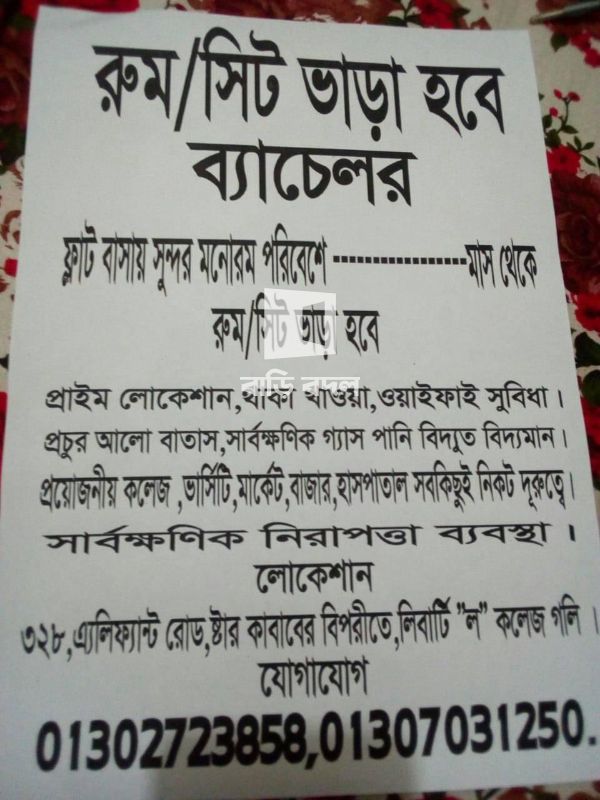 রুম/সিট ভাড়া হবে
ব্যাচেলর
ফ্লাট বাসায় সুন্দর মনোরম পরিবেশে ------------------মাস থেকে
রুম/সিট ভাড়া হবে
বাড়ি বদল
প্রাইম লোকেশান,থাকা খাওয়া,ওয়াইফাই সুবিধা।
প্রচুর আলো বাতাস,সার্বক্ষণিক গ্যাস পানি বিদ্যুত বিদ্যমান।
প্রয়োজনীয় কলেজ ,ভার্সিটি,মার্কেট,বাজার,হাসপাতাল সবকিছুই নিকট দূরুত্বে।
সার্বক্ষণিক নিরাপত্তা ব্যবস্থা ।
লোকেশান
৩২৮,এ্যলিফ্যান্ট রোড,ষ্টার কাবাবের বিপরীতে,লিবার্টি "ল" কলেজ গলি ।
যোগাযোগ
01302723858,01307031250.